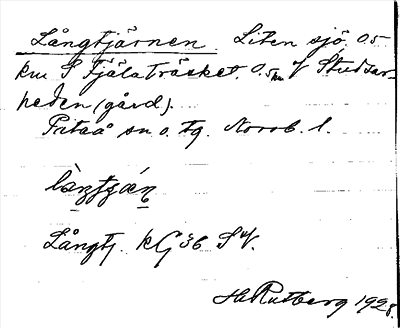 Långtjärnen. Liten sjö. 0.5
km S Fjälaträsket. 0.5 km V Studsar-
heden (gård).
Piteå sn o. tg. Norrb. l.
Långtj. kG 36 SV.
H. Rutberg 1928.